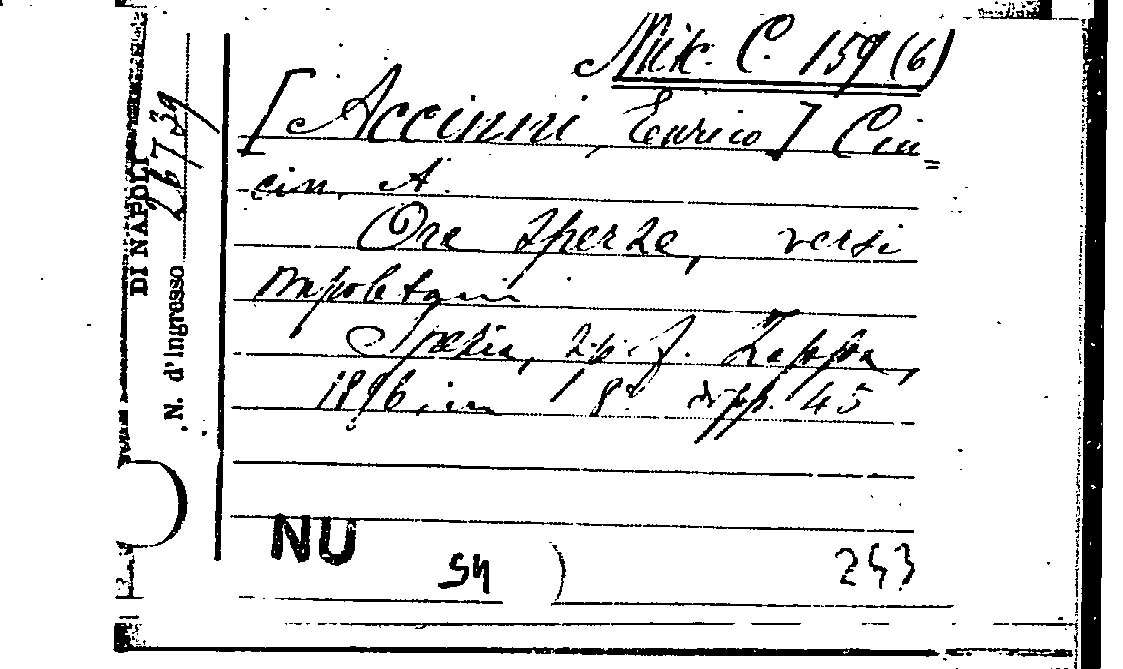 Misc. C. 159 (6)
[Accinni, Enrico] Cin=
cin, A.
Ore sperse, versi
napoletani
Spezia, tip. F. Zappa,
1896, in 8° di pp. 45
NU
243
DI NAPOLI
N. d'Ingresso 26739